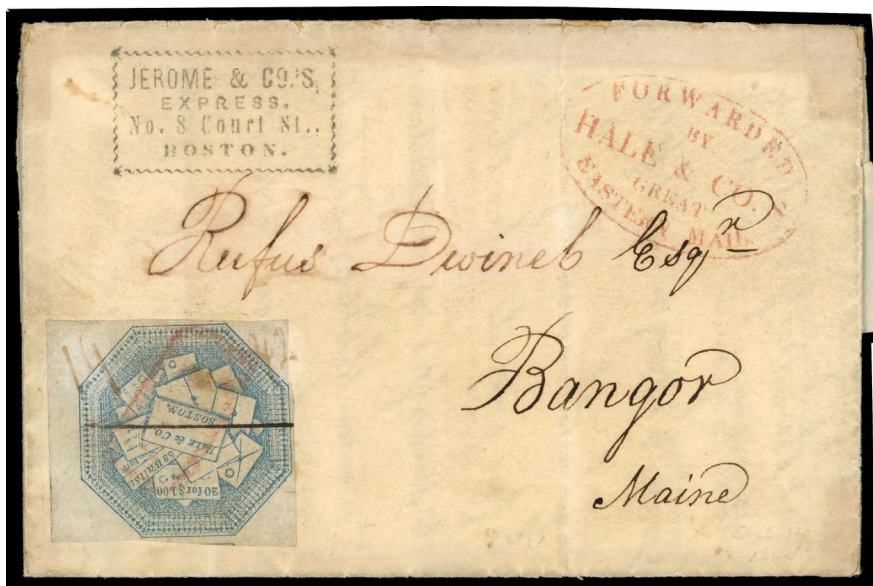 JEROME & CO.'S,
EXPRESS.
No. 8 Court St..
BOSTON.
FORWARDED
BY
HALE & CO.
GREAT
EASTERN MAIL
Rufus Dwinel Esqr
Bangor
Maine
BOSTON.
HALE & CO.
58 Wall St.
20 for $1.00